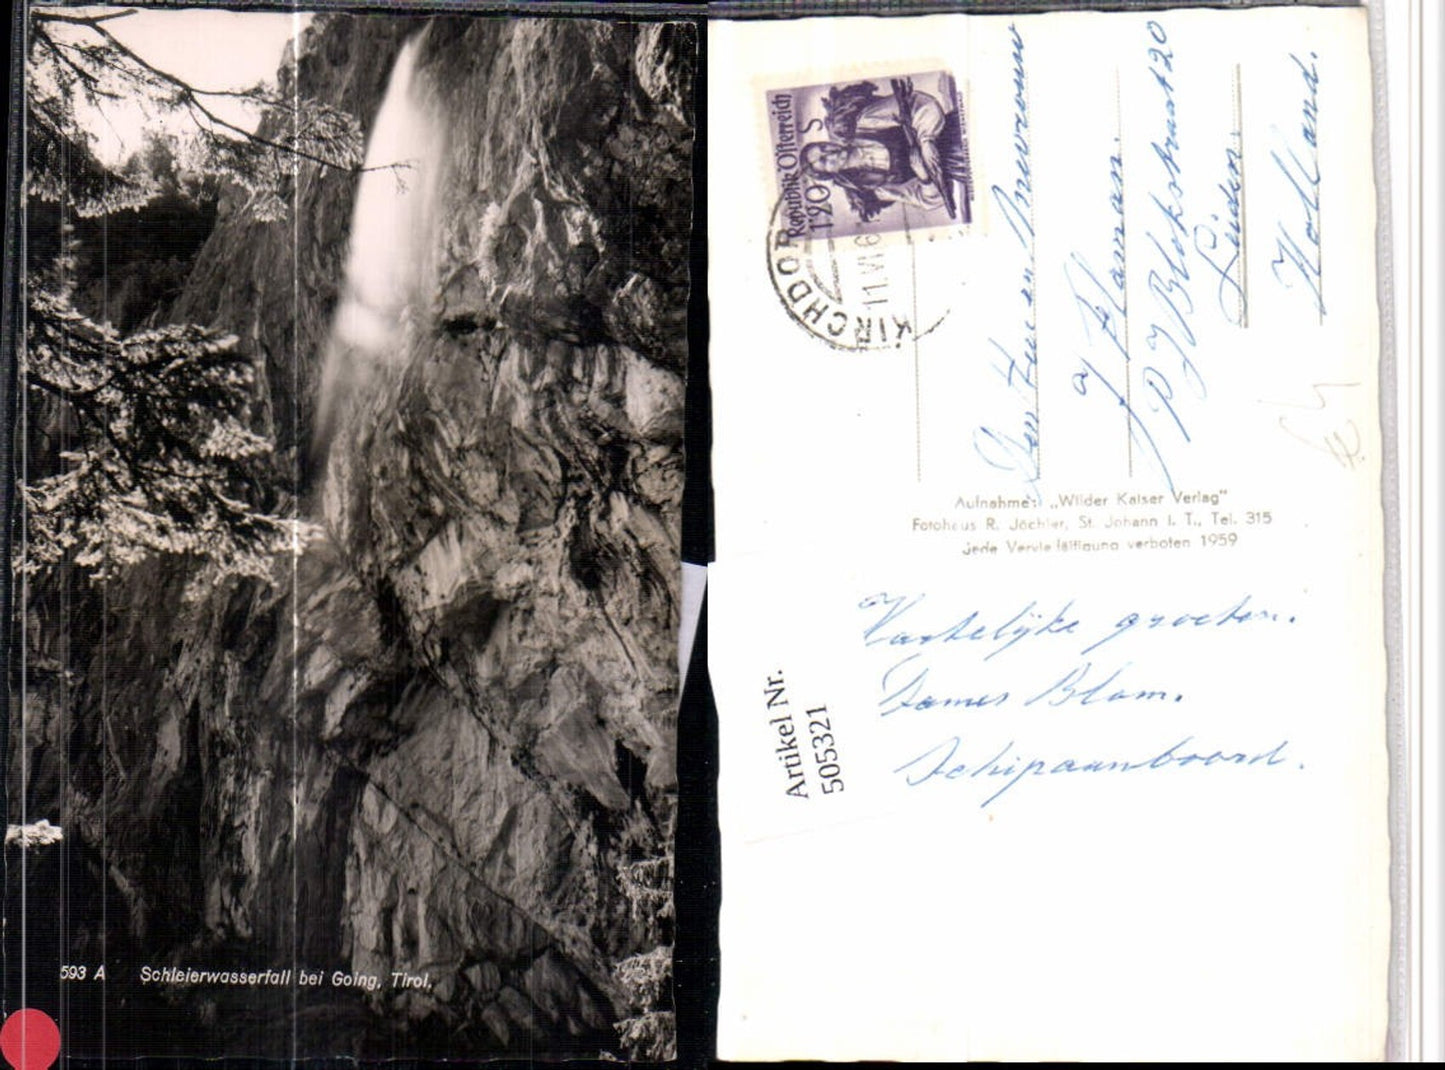 593 A Schleierwasserfall bei Going, Tirol.
Republik Österreich
1'20 S
KIRCHDOR
11.VI.6
Leiden.
Holland.
Aufnahme: „Wilder Kaiser Verlag"
Fotohaus R. Jöchler, St. Johann i. T., Tel. 315
Jede Vervielfältigung verboten 1959
Hartelijke groeten.
James Blom.
Schipaanboord.
Artikel Nr.
505321